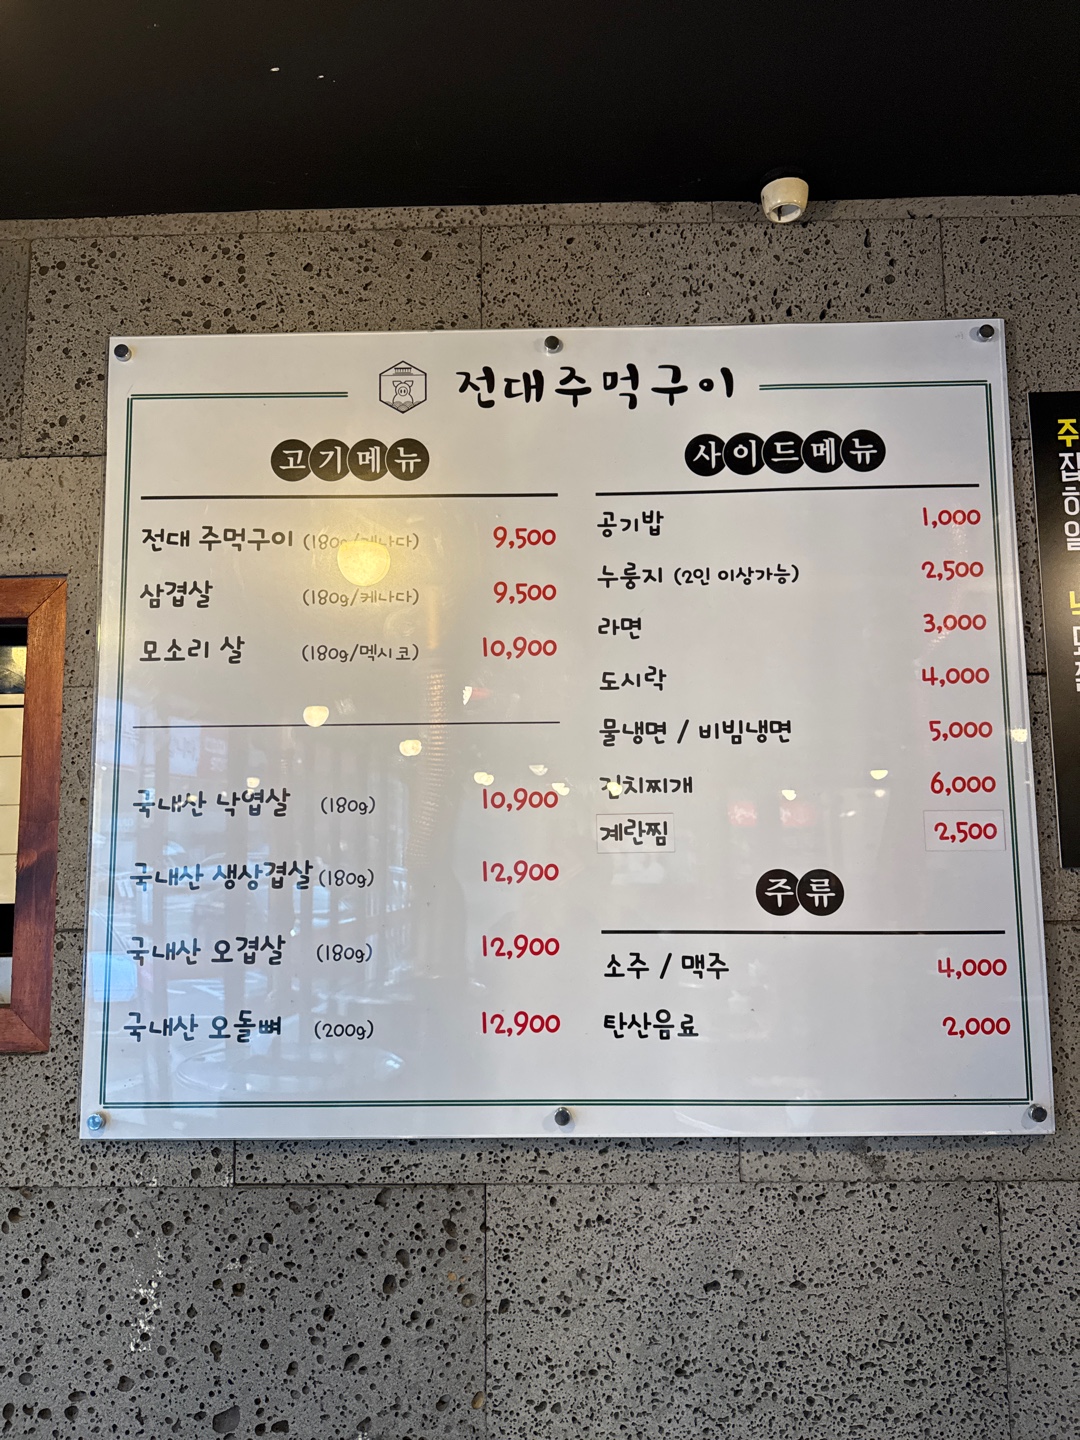 전대주먹구이
고기메뉴
전대 주먹구이 (180g/케나다) 9,500
삼겹살 (180g/케나다) 9,500
모소리 살 (180g/멕시코) 10,900
국내산 낙엽살 (180g) 10,900
국내산 생삼겹살 (180g) 12,900
국내산 오겹살 (180g) 12,900
국내산 오돌뼈 (200g) 12,900
사이드메뉴
공기밥 1,000
누룽지 (2인 이상가능) 2,500
라면 3,000
도시락 4,000
물냉면 / 비빔냉면 5,000
김치찌개 6,000
계란찜 2,500
주류
소주 / 맥주 4,000
탄산음료 2,000
주
집
하
일